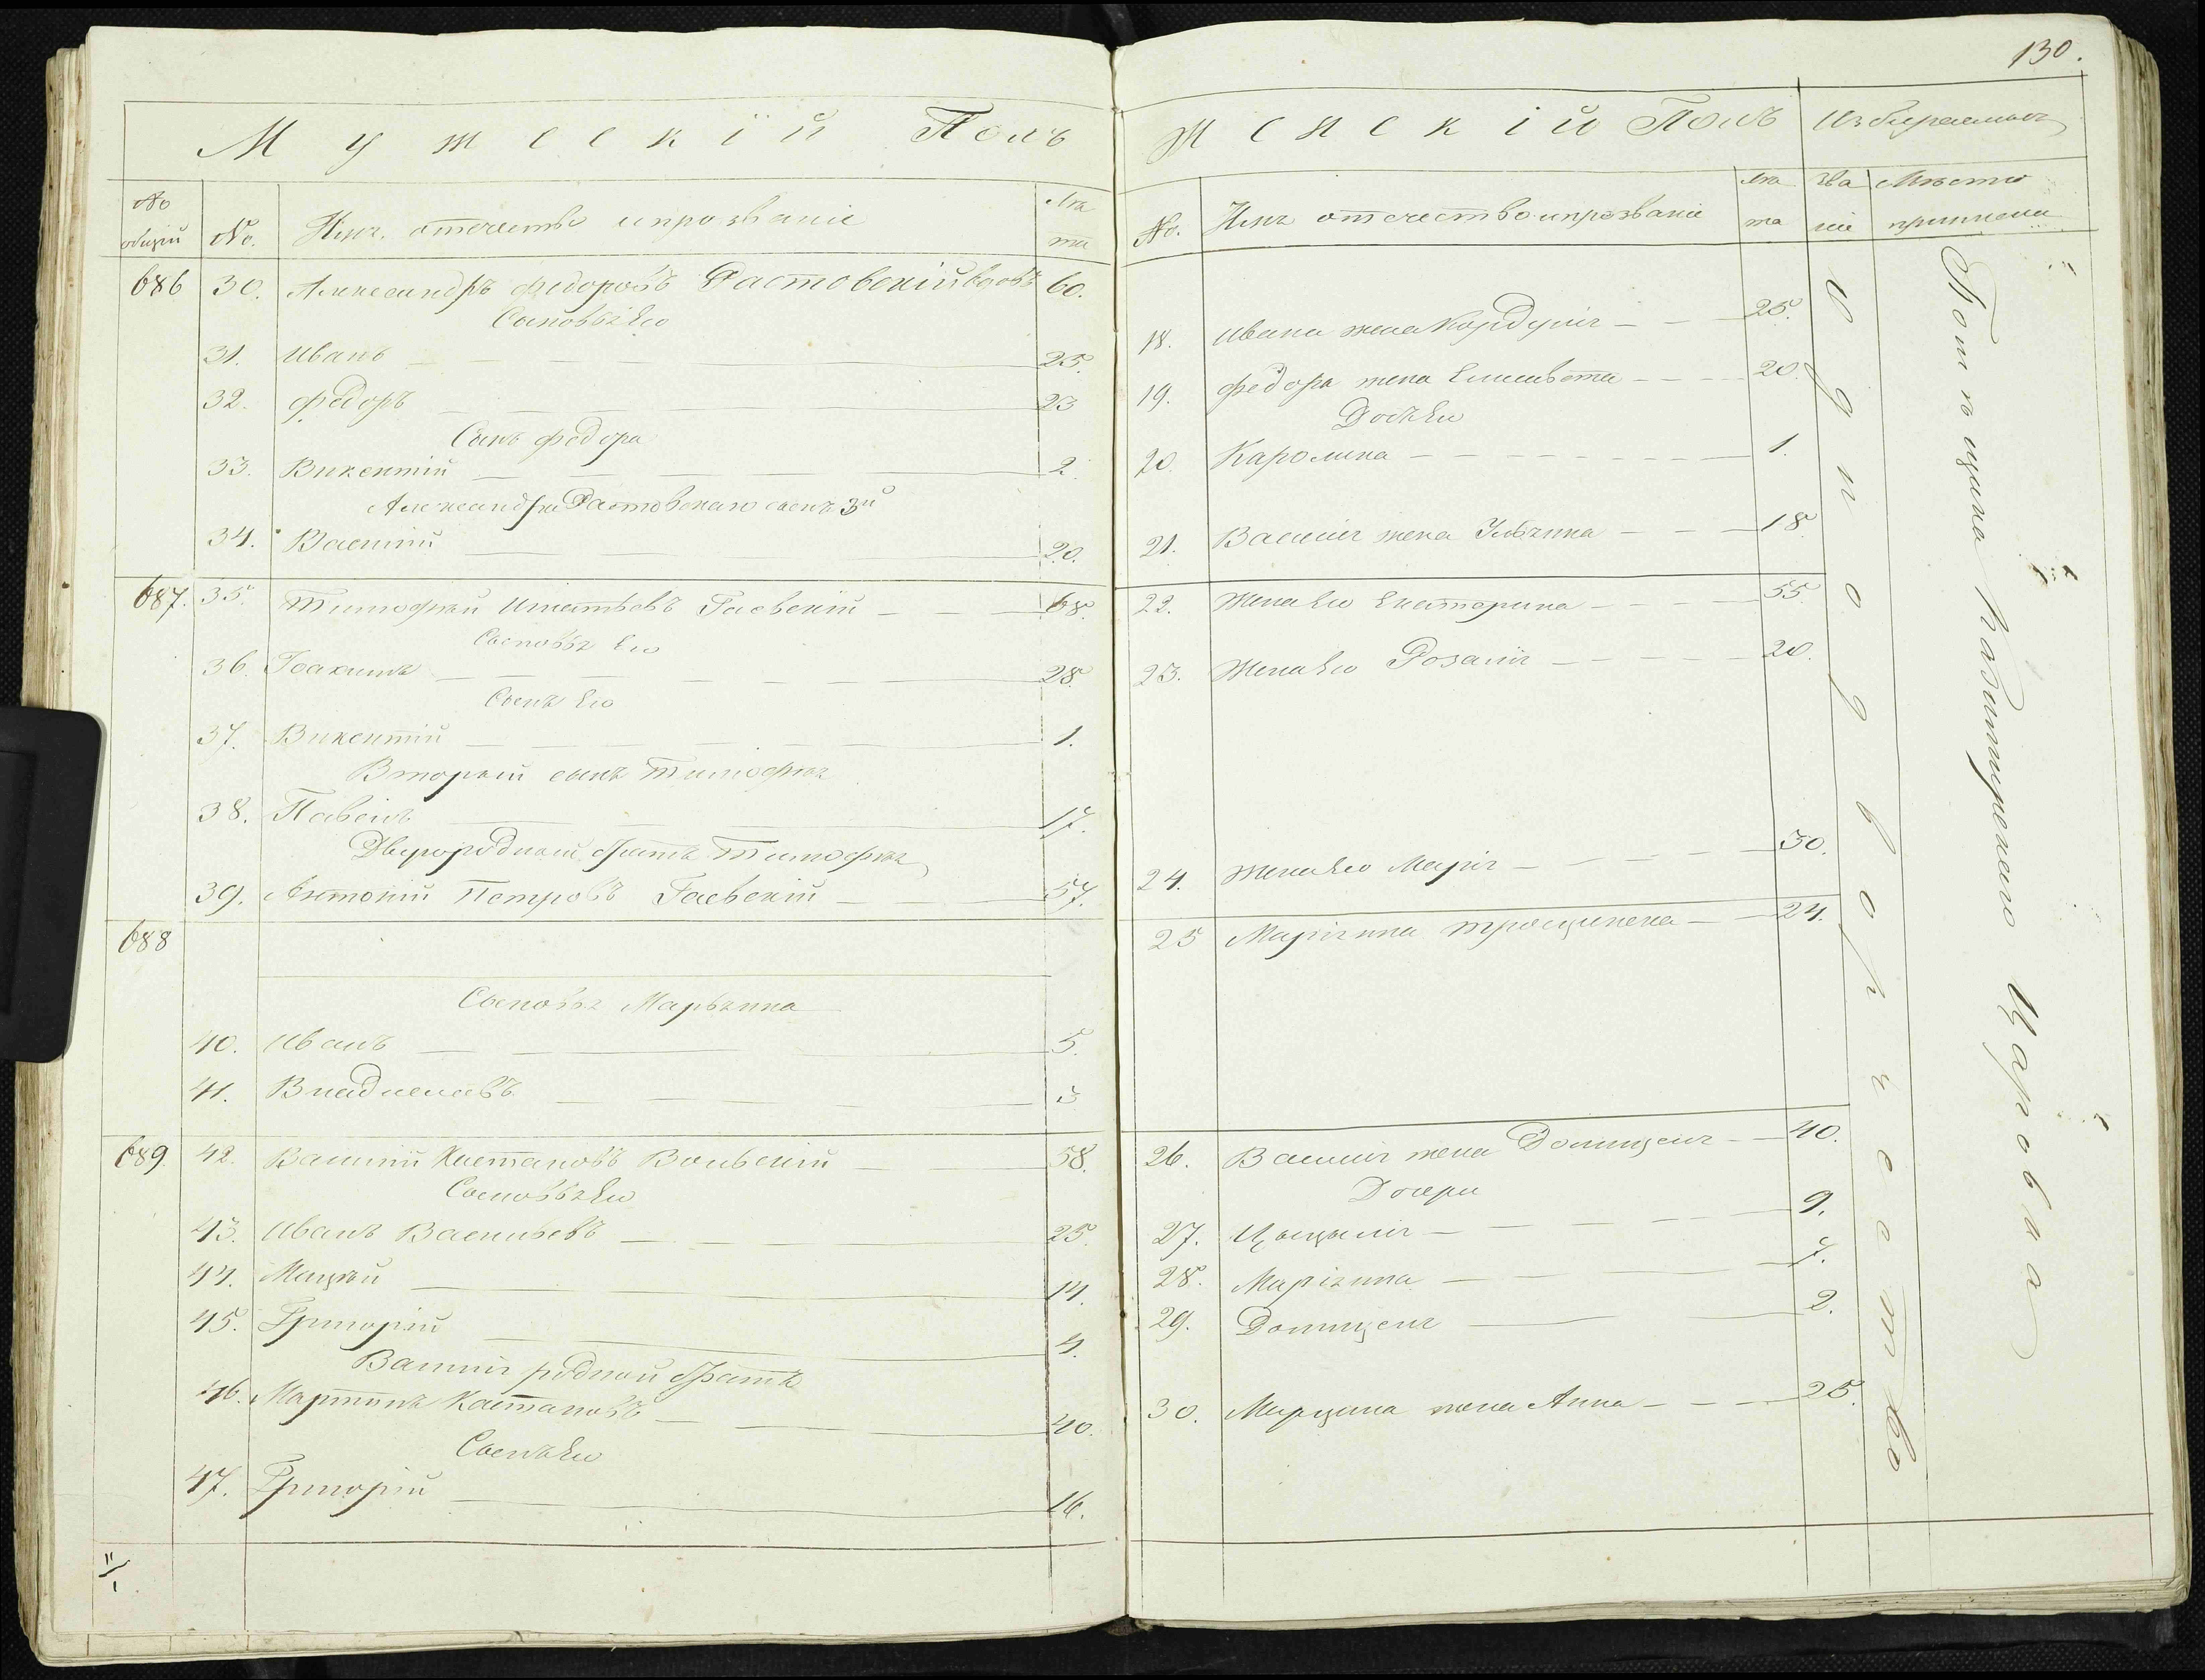 130.
Мужескій Полъ
№ общій
№.
Имя, отчество и прозваніе
Лѣта
686 30. Александръ Федоровъ Растовскій вдовъ 60.
Сыновья Его
31. Иванъ 25.
32. Федоръ 23
Сынъ Федора
33. Викентій 2.
Александра Растовскаго сынъ 3й
34. Василій 20.
687. 35. Тимофѣй Игнатьевъ Гаевскій 68.
Сыновья Его
36. Іоахимъ 28.
Сынъ Его
37. Викентій 1.
Вторый сынъ Тимофѣя
38. Павелъ 17.
Двуродный братъ Тимофѣя
39. Антоній Петровъ Гаевскій 57.
688
Сыновья Марьянна
40. Иванъ 5.
41. Владиславъ 3
689. 42. Василій Кастановъ Вольскій 58.
Сыновья Его
43. Иванъ Васильевъ 25.
44. Мацѣй 14.
45. Григорій 4.
Василія родный братъ
46. Мартинъ Кастановъ 40.
Сынъ Его
47. Григорій 16.
11/1
Женскій Полъ
Избираемыя
№.
Имя отчество и прозваніе
Лѣта
Званіе
Мѣсто приписки
18. Ивана жена Кордулія 25.
19. Федора жена Елисавета 20.
Дочь Ея
20. Каролина 1.
21. Василія жена Ульяна 18
22. Жена Его Екатерина 55
23. Жена Его Розалія 20.
24. Жена Его Марія 30.
25 Маріянна Трощинска 24.
26. Василія жена Домицеля 40.
Дочери
27. Цыцылія 9.
28. Маріянна 7.
29. Домицеля 2.
30. Марцина жена Анна 25.
Однодворчество
Ботъ къ цыка Казимирскаго Царовка